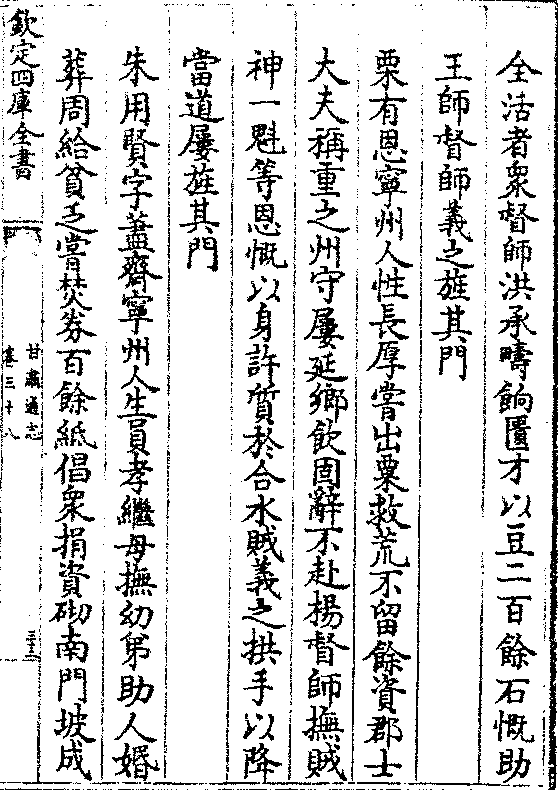 全活者衆督師洪承疇餉匱才以豆二百餘石慨助
王師督師義之旌其門
栗有恩寧州人性長厚嘗出粟救荒不留餘資郡士
大夫稱重之州守屢延鄉飲固辭不赴楊督師撫賊
神一魁等恩慨以身許質於合水賊義之拱手以降
當道屢旌其門
朱用賢字藎齋寧州人生員孝繼母撫幼弟助人婚
葬周給貧乏嘗焚券百餘紙倡衆捐資砌南門坡成
欽定四庫全書
甘肅通志
卷三十八
三十三